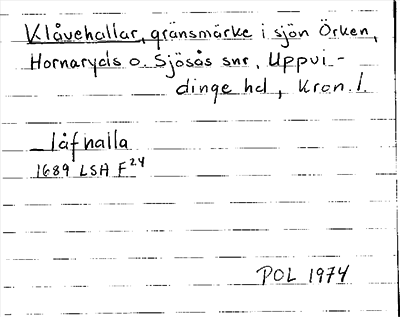 Klåvehallar, gränsmärke i sjön Örken,
Hornaryds o. Sjösås snr, Uppvi-
dinge hd, Kron. l.
— låfhalla
1689 LSA F24
POL 1974